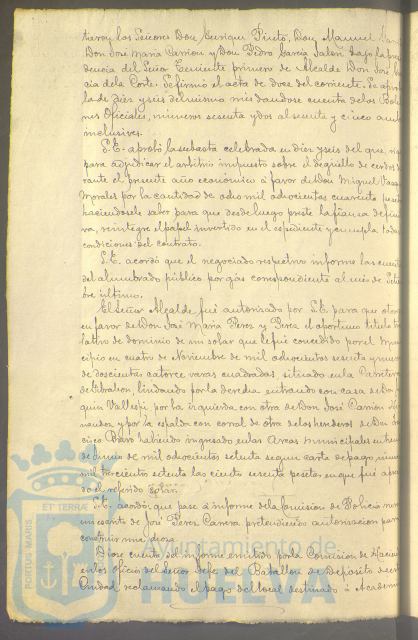 tieron los Señores Don Enrique Pinto, Don Manuel
Don José Maria Carrion y Don Pedro Garcia Jalon bajo la pre
dencia del Señor Teniente primero de Alcalde Don José
cia de la Corte. Se firmó el acta de doce del corriente. Se apro
la de diez y seis del mismo mes dandose cuenta de los Bole
nes Oficiales, numeros sesenta y dos al sesenta y cinco am
inclusives.
S.E. aprobó la subasta celebrada en diez y seis del que
para adjudicar el arbitrio impuesto sobre el degüello de cerdos
rante el presente año economico á favor de Don Miguel
Morales por la cantidad de ocho mil ochocientas cuarenta
haciendosele saber para que desde luego preste la fianza defini
va, reintegre el papel invertido en el expediente y cumpla todas
condiciones del contrato.
S.E. acordó que el negociado respectivo informe las cuentas
del alumbrado público por gas correspondiente al mes de
bre último.
El Señor Alcalde fué autorizado por S.E. para que otor
en favor de Don José Maria Perez y Perez el oportuno titulo
lativo de dominio de un solar que le fué concedido por el Muni
cipio en cuatro de Noviembre de mil ochocientos sesenta y
de doscientas catorce varas cuadradas situado en la
de Gibraleon, lindando por la derecha entrando con casa de Don
quin Vallespi por la izquierda con otra de Don José Carrion
nandez y por la espalda con corral de otra de los herederos de Don
cisco habiendo ingresado en las Arcas municipales en
de Junio de mil ochocientos setenta segun carta de pago
mil trescientos setenta las ciento sesenta pesetas en que fué apre
do el referido solar.
S.E. acordó que pase á informe de la Comision de Policia
instante de José Perez Carrera pretendiendo autorizacion para
construir una
Diose cuenta del informe emitido por la Comision de Hacien
en los oficios del Señor Jefe del Batallon de Deposito de
Ciudad reclamando el pago del local destinado á Academ
PORTUS MARIS
ET TERRAE
Ayuntamiento de
HUELVA